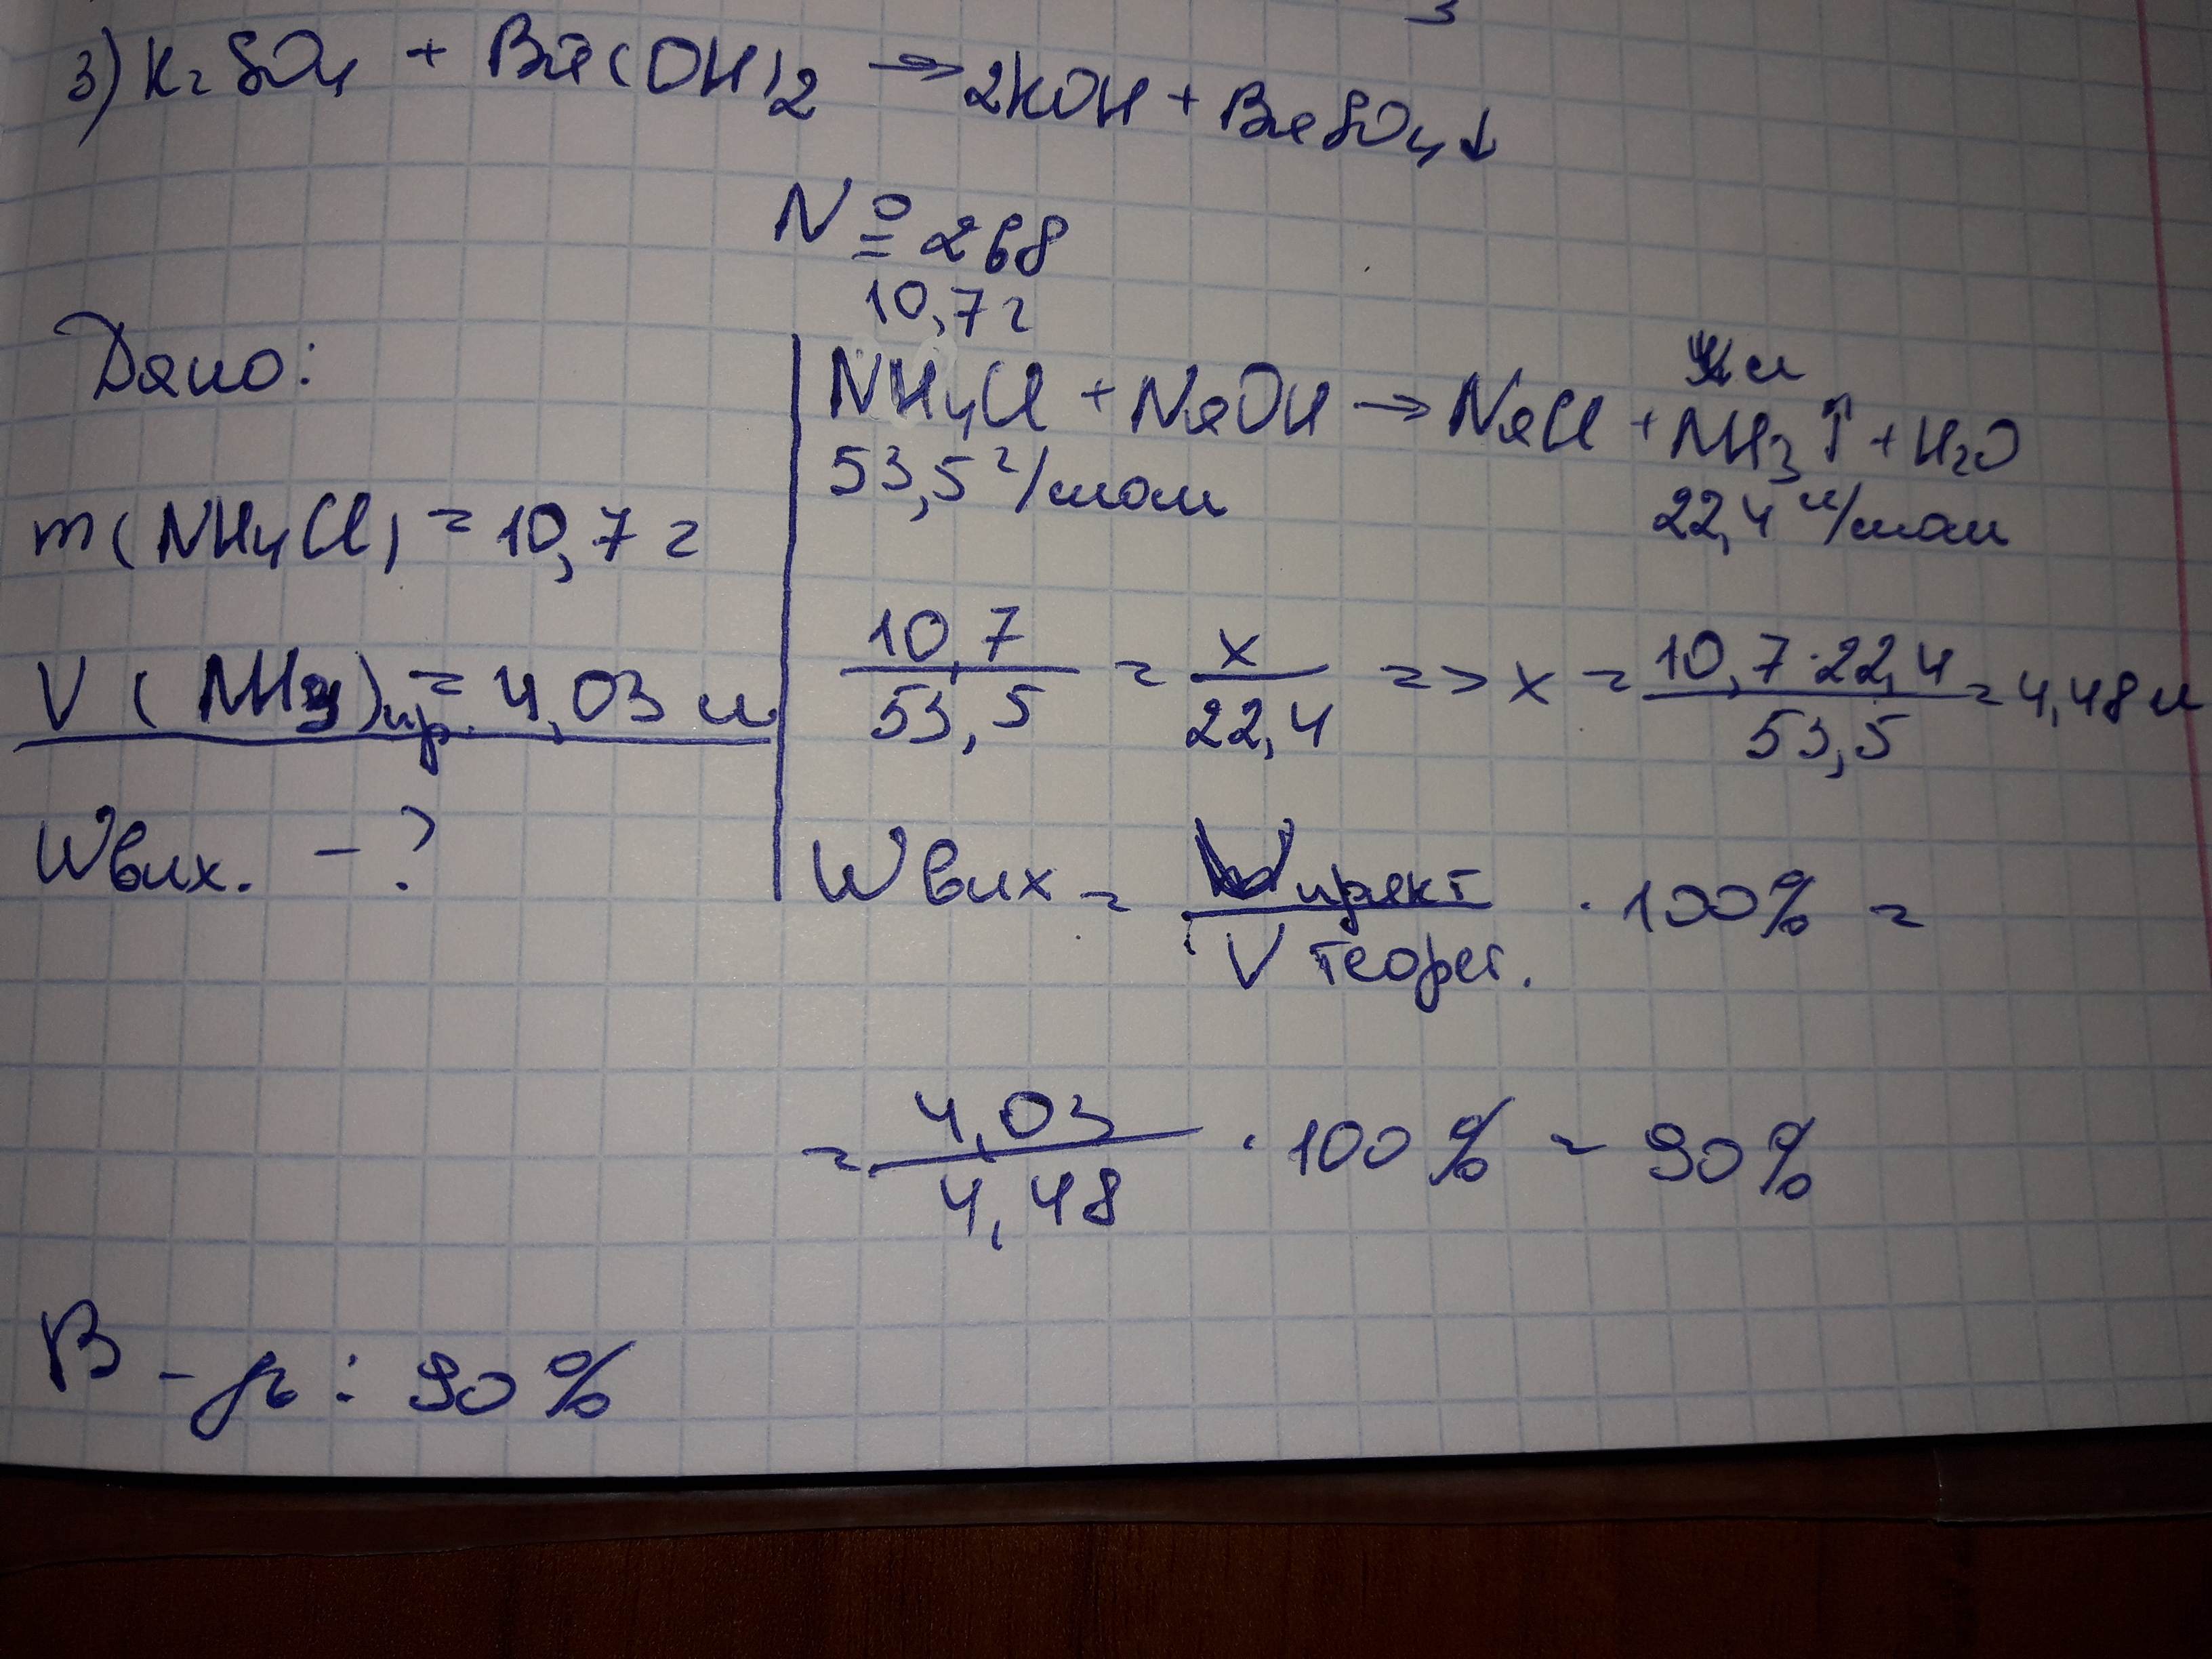 3) K₂SO₄ + Ba(OH)₂ → 2KOH + BaSO₄↓
№ 268
Дано:
m(NH₄Cl) = 10,7 г
V(NH₃)пр. = 4,03 л
Wвих. - ?
10,7 г
x л
NH₄Cl + NaOH → NaCl + NH₃↑ + H₂O
53,5 г/моль 22,4 л/моль
10,7/53,5 = x/22,4 => x = 10,7·22,4/53,5 = 4,48 л
Wвих = Vпракт/Vтеорет. · 100% =
= 4,03/4,48 · 100% = 90%
В-дь: 90%